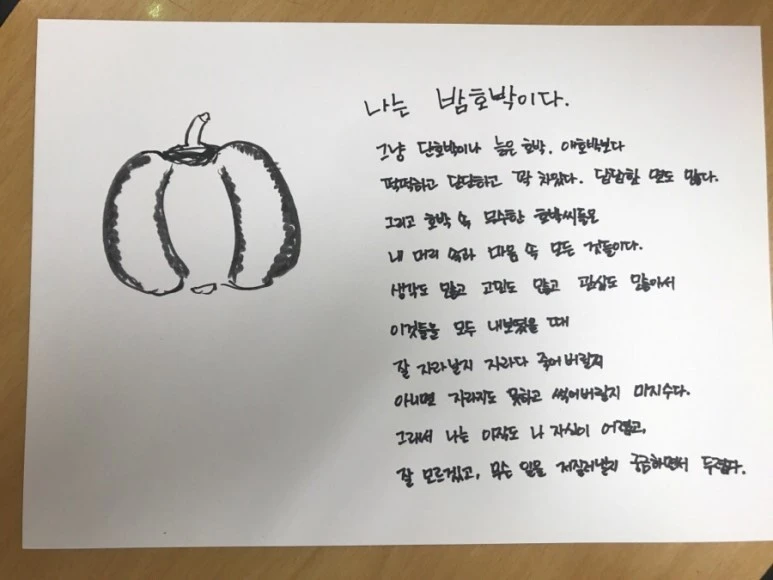 나는 밤호박이다.
그냥 단호박이나 늙은 호박, 애호박보다
퍽퍽하고 단단하고 꽉 차있다. 답답할 만도 많다.
그리고 호박 속 무수한 호박씨들은
내 머리 속과 마음 속 모든 것들이다.
생각도 많고 고민도 많고 관심도 많아서
이것들을 모두 내보냈을 때
잘 자라날지 자라다 죽어버릴지
아니면 자라지도 못하고 썩어버릴지 미지수다.
그래서 나는 아직도 나 자신이 어렵고,
잘 모르겠고, 무슨 일을 저질러낼지 궁금하면서 두렵다.